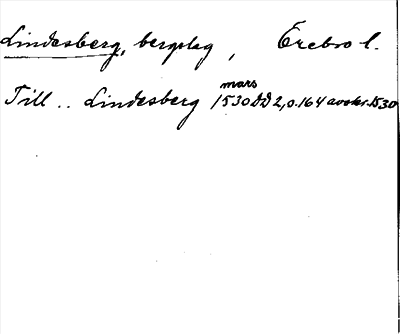 Lindesberg, bergslag, Örebro l.
mars
Till .. Lindesberg 1530 DD 2, o. 164 avskr. 1530